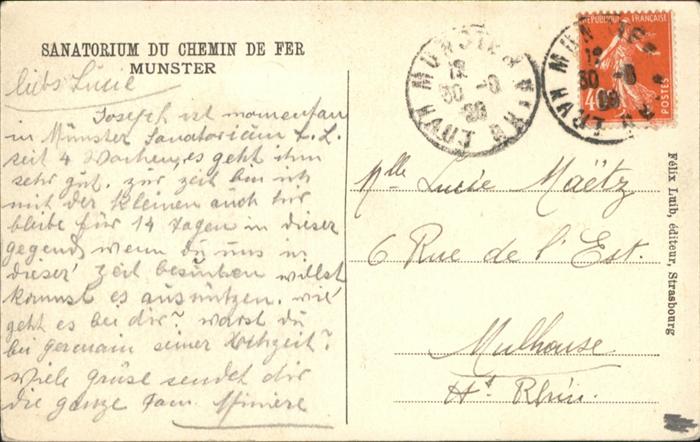 SANATORIUM DU CHEMIN DE FER
MUNSTER
liebs Lucie
Joseph ist momentan
in Münster Sanatorium
seit 4 Wochen, es geht ihm
sehr gut. zur zeit bin ich
mit der kleinen auch hir
bleibe für 14 Tagen in dieser
gegend, wenn du uns in
dieser zeit besuchen willst
kannst es ausnützen. wie
geht es bei dir? warst du
bei germain seiner Hochzeit?
Viele grüse sendet dir
die ganze Fam. Minère
MUNSTER
HAUT RHIN
30 -8
26
MUNSTER
HAUT RHIN
30 -8
REPUBLIQUE FRANÇAISE
40
POSTES
Mlle Lucie Maëtz
6 Rue de l'Est.
Mulhouse
Ht Rhin.
Félix Luib, éditeur, Strasbourg